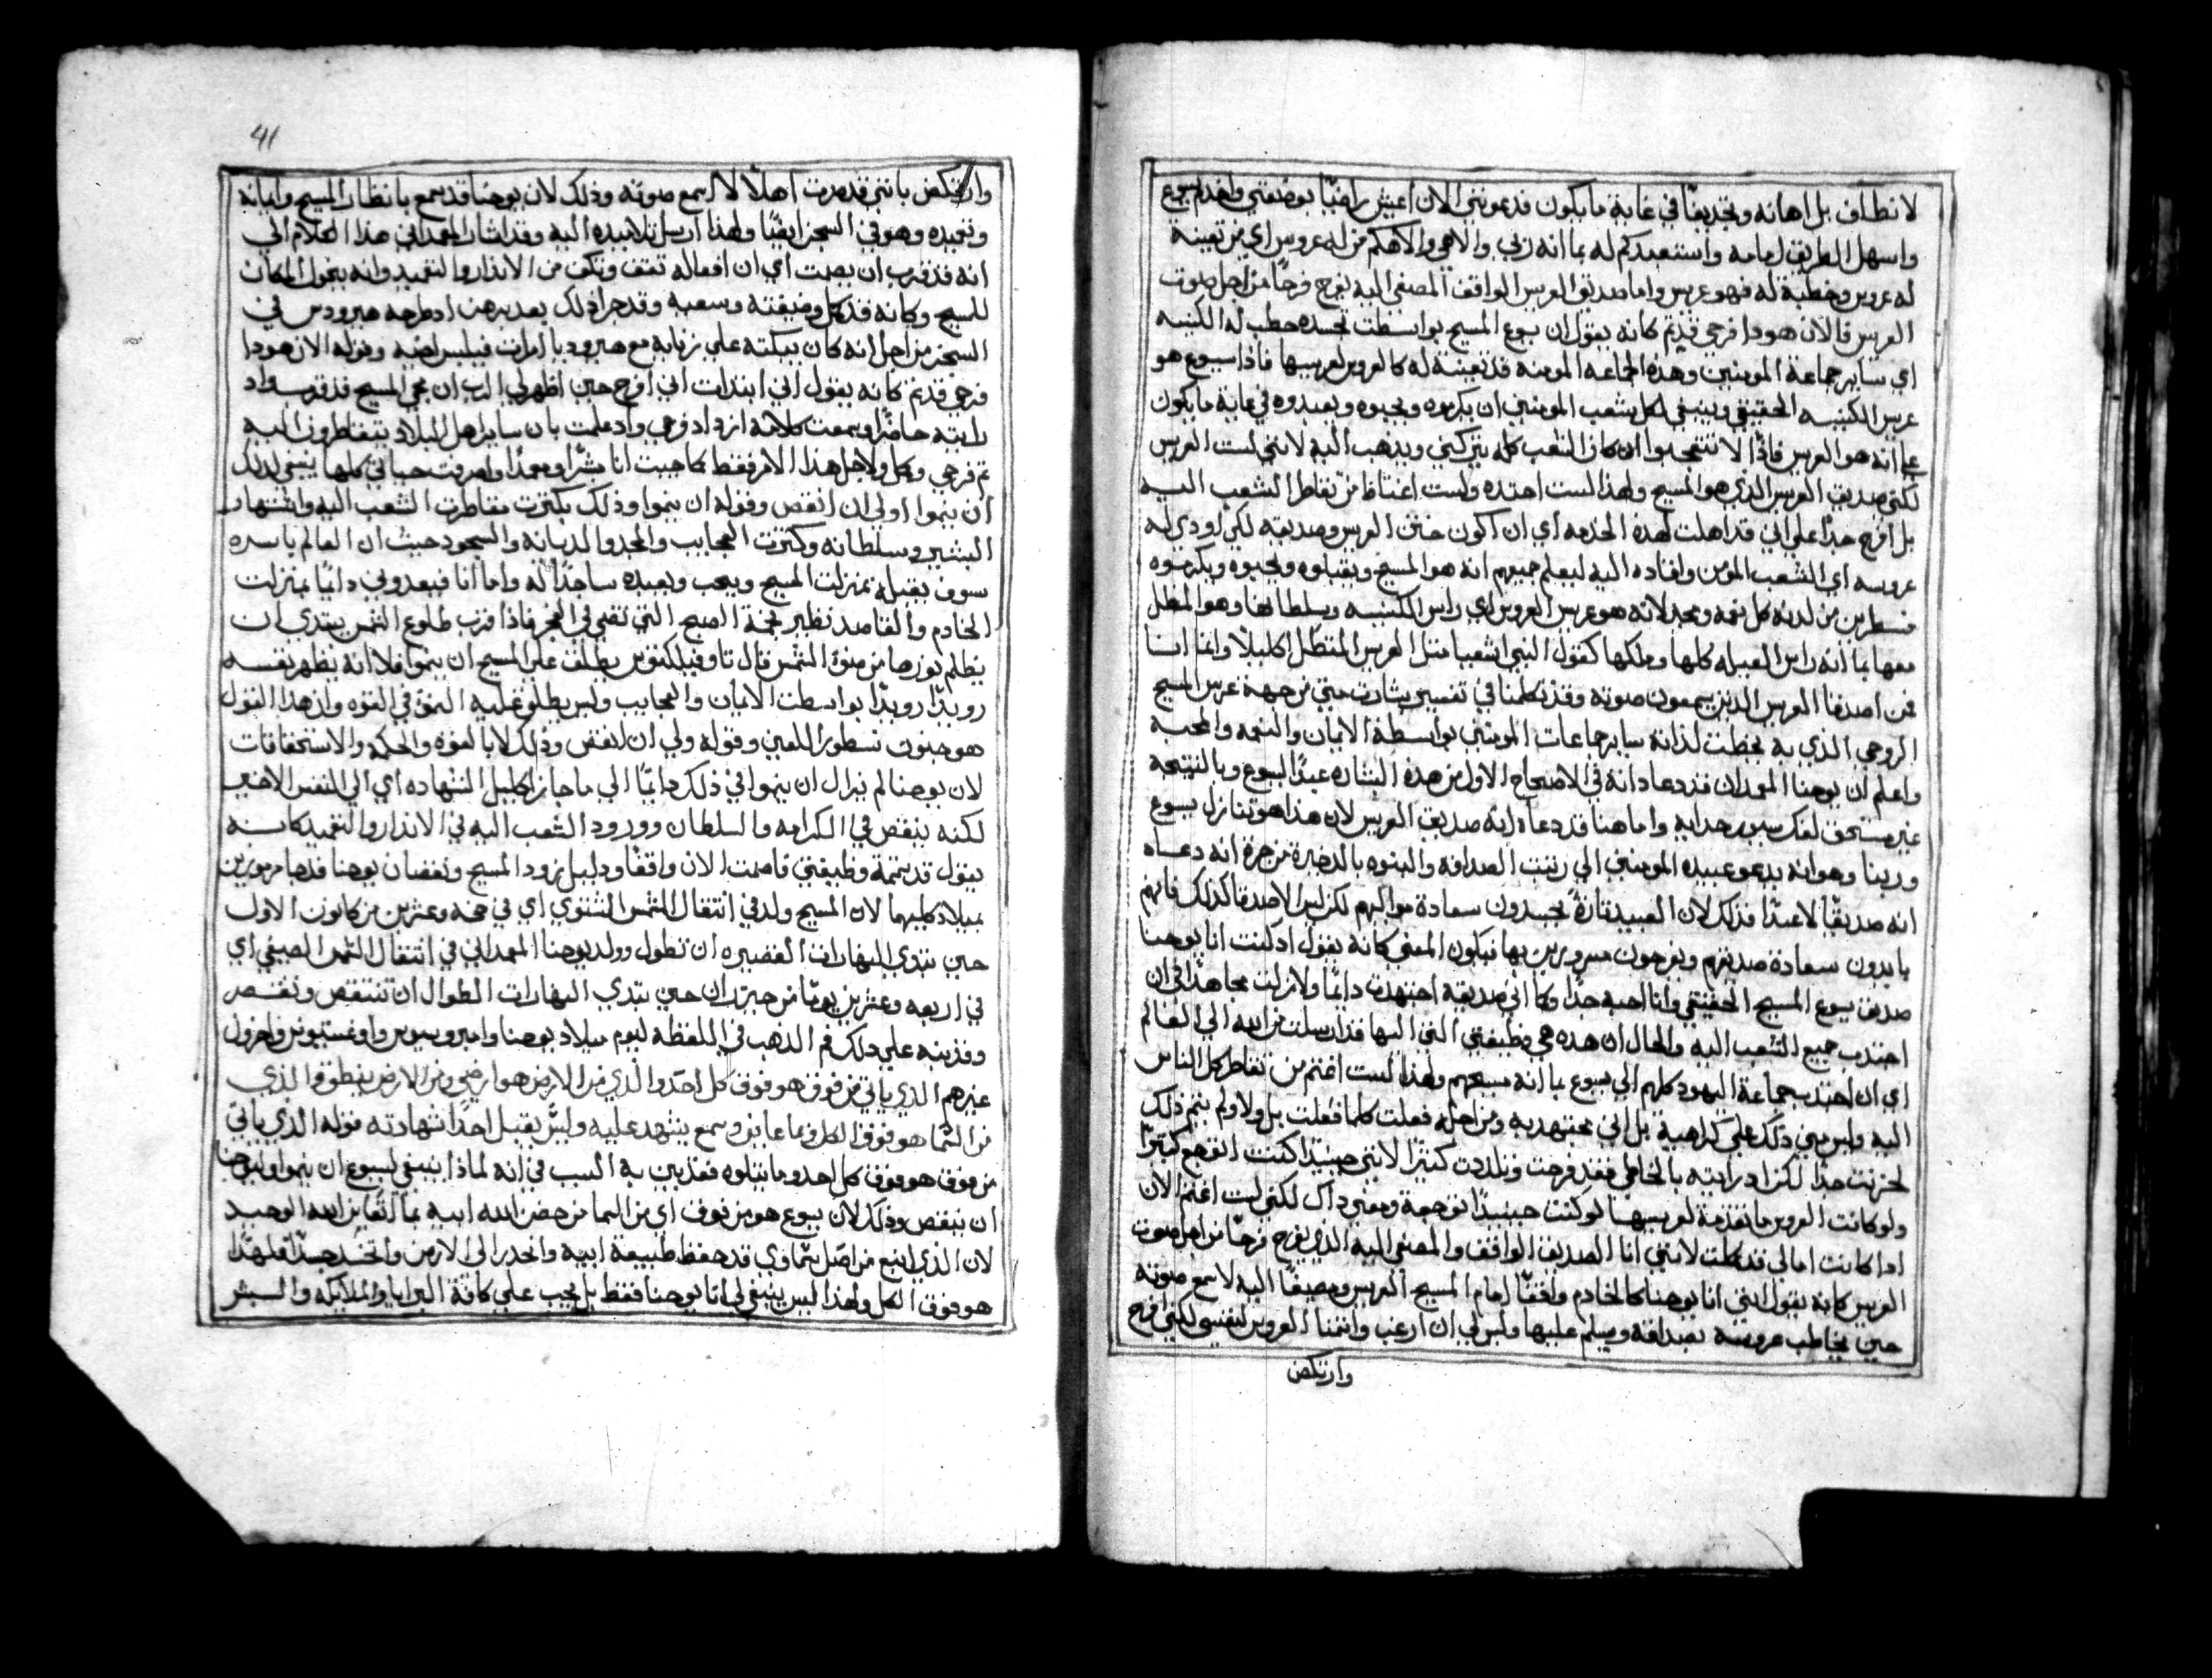 لا نطاف بل اهانه وتجديفًا في غاية ما يكون فدعوتني الان اعيش راضيًا بوضيفتي واخدم يسوع
واسهل الطريق امامه واستعبدكم له بما انه زبي والاهي والاهكم من له عروس اي من تعينة
له عروس وخطيبة له فهو عريس واما صديق العريس الواقف المصغي اليه يفرح فرحًا من اجل صوت
العريس فالان هودا فرحي قد تم كانه يقول ان يسوع المسيح بواسطت تجسده خطب له الكنيسه
اي ساير جماعة المومنين وهذه الجماعه المومنه قد تعينة له كالعروس لعريسها فاذا يسوع هو
عريس الكنيسه الحقيقي وينبغي لكل شعب المومنين ان يكرموه ويحبوه ويعبدوه في غاية ما يكون
بما انه هو العريس فاذًا لا تتعجبوا ان كان الشعب كله يتركني ويذهب اليه لانني لست العريس
لكني صديق العريس الذي هو المسيح ولهذا لست احتده ولست اغتاظ من تقاطر الشعب اليه
بل افرح جدًا علي اني قد اهلت لهذه الخدمه اي ان اكون ختن العريس وصديقه لكي اودي له
عروسه اي الشعب المومن واقتاده اليه ليعلم جميعهم انه هو المسيح ويقبلوه ويحبوه ويكرموه
منتظرين من لدنه كل نعمه ومجد لانه هو عريس العروس اي راس الكنيسه وسلطانها وهو المكلل
معها بما انه راس القبيله كلها وملكها كقول النبي اشعيا مثل العريس المتكلل اكليلًا وانما اسا
نحن اصدقا العريس الذين يسمعون صوته وقد تكلمنا في تفسير بشارت متي من جهة عرس المسيح
الروحي الذي به يخطب لذاته ساير جماعات المومنين بواسطة الايمان والنعمه والمحبه
واعلم ان يوحنا المعمدان قد دعا ذاته في الاصحاح الاول من هذه البشاره عبدًا ليسوع وبالنتيجه
غير مستحق لفك سيور حذايه واما هنا قد دعا ذاته صديق العريس لان هذا هو تنازل يسوع
وربنا وهو انه يدعو عبيده المومنين الي رتبت الصداقه والبنوه بالذخيرة من جرا انه دعاه
انه صديقًا لا عبدًا فذلك لان العبيد تارةً يحسدون سعادة مواليهم لكن ليس الاصدقا كذلك فانهم
يا يدون سعادة صديقهم ويفرحون مسرورين بها فيكون المعني كانه يقول اذ كنت انا يوحنا
صديق يسوع المسيح الحقيقي وانا احبه جدًا وكما اني صديقه اجتهدت دائمًا ولازلت مجاهدًا في ان
اجتذب جميع الشعب اليه والحال ان هذه هي وظيفتي التي اليها قد ارسلت من الله الي العالم
اي ان اجتذب جماعة اليهود كلهم الي يسوع بما انه مسيحهم ولهذا لست اغتم من تقاطر كل الناس
اليه وليس بي ذلك علي كراهية بل اني مجتهد به ومن اجله فعلت كلما فعلت بل ولا ولم يتم ذلك
لحزنت جدًا لكن اذ رايته بالحاظي فقد فرحت وتلذذت كثيرًا لانني حينيذًا كنت اتوجع كثيرًا
ولو كانت العروس ما تقدمة لعريسها لو كنت حينيذًا توجعة ومعني ذاك لكني لست اغتم الان
اذا كانت امالي قد كملت لانني انا الصديق الواقف والمصغي اليه الذي يفرح فرحًا من اجل صوت
العريس كانه يقول انني انا يوحنا كالخادم واقفًا امام المسيح العريس ومصيغًا اليه لاسمع صوته
حين يخاطب عروسه بصداقه ويسلم عليها وليس لي ان ارغب واتمنا العروس لنفسي لكني افرح
وارتكض
41
وارتكض بانني قد صرت اهلًا لا اسمع صوته وذلك لان يوحنا قد سمع بانظار المسيح واياته
وتعميده وهو في السجن ايضًا ولهذا ارسل تلاميذه اليه وقد اشار المعمداني هذا الكلام الي
انه قد قرب ان يصمت اي ان افعاله تقف وتكف من الانذار والتعميد وانه يخول المكان
للمسيح وكانه قد كمل وضيفته وسعيه وقد جرا ذلك بعد برهن اذ طرحه هيرودس في
السجن من اجل انه كان يبكته علي زنايه مع هيروديا امرات فيلبس اخيه وقوله الان هودا
فرحي قد تم كانه يقول اني ابتدات اني افرح حين اظهر لي الرب ان مجي المسيح قد قرب واذ
رايته حاضرًا وسمعت كلامه ازداد فرحي واذ علمت بان ساير اهل البلاد يتقاطرون اليه
تم فرحي وكمل ولاجل هذا الامر فقط كما جيت انا مبشرًا ومعمدًا واصرفت حياتي كلها ينبغي لذلك
ان ينموا ولي ان انقص وقوله ان ينموا وذلك بكثرت مقاطرت الشعب اليه واشتهار
البشير وسلطانه وكثرت العجايب والمجد والديانه والسجود حيث ان العالم باسره
سوف يقبله بمنزلت المسيح ويجب ويعبده ساجدًا له واما انا فيعدوني دائمًا بمنزلت
الخادم والقاصد نظير نجمة الصبح التي تضي في الفجر فاذا قرب طلوع الشمس يبتدي ان
يظلم نورها من ضوء الشمس قال تاوفيلكتوس يطلق علي المسيح ان ينموا فلا انه يظهر نفسه
رويدًا رويدًا بواسطت الايمان والعجايب وليس يطلق عليه النمو في القوه واذ هذا القول
هو جنون نسطور اللعين وقوله ولي ان انقص وذلك لا بالقوه والحكمه والاستحقاقات
لان يوحنا لم يزال ان ينموا في ذلك دايمًا الي ما حاز اكليل الشهاده اي الي النفس الاخير
لكنه ينقص في الكرامه والسلطان وورود الشعب اليه في الانذار والتعميد كانه
يقول قد تتمة وظيفتي فاصمت الان واقفًا ودليل نرود المسيح ونقصان يوحنا قد جا مرموزين
بميلاد كليهما لان المسيح ولد في انتقال الشمس الشتوي اي في خمسه وعشرين من كانون الاول
حين تبتدي النهارات القصيره ان تطول وولد يوحنا المعمداني في انتقال الشمس الصيفي اي
في اربعه وعشرين يومًا من حزيران حين يبتدي النهارات الطوال ان تنتقص وتقصر
وقد بنه علي ذلك فم الذهب في اللفظه ليوم ميلاد يوحنا وامبروسيوس واوغستينوس واخرون
غيرهم الذي ياتي من فوق هو فوق كل احد والذي من الارض هو ارضي ومن الارض ينطق والذي
من السما هو فوق الكل وبما عاين وسمع يشهد عليه وليس يقبل احدًا شهادته قوله الذي ياتي
من فوق هو فوق كل احد وما يتلوه فقد بين به السبب في انه لماذا ينبغي ليسوع ان ينموا وليوحنا
ان ينقص وذلك لان يسوع هو من فوق اي من السما من حضن الله ابيه بما انه ابن الله الوحيد
لان الذي انبع من اصل سماوي قد حفظ طبيعة ابيه وانحدر الي الارض واتخذ جسدًا فلهذا
هو فوق الكل ولهذا ليس ينبغي لي انا يوحنا فقط بل يجب علي كافة البرايا والملايكه والبشر